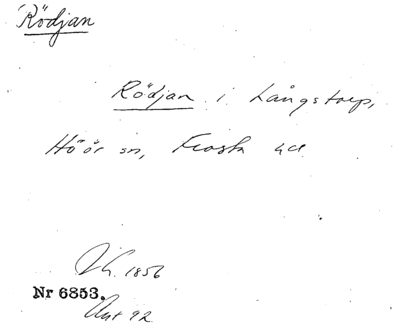 Rödjan
Rödjan i Långstorp,
Höör sn, Frosta hd
1856
Nr 6853.
92